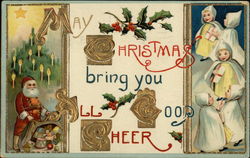 May
Christmas
bring you
All Good
Cheer